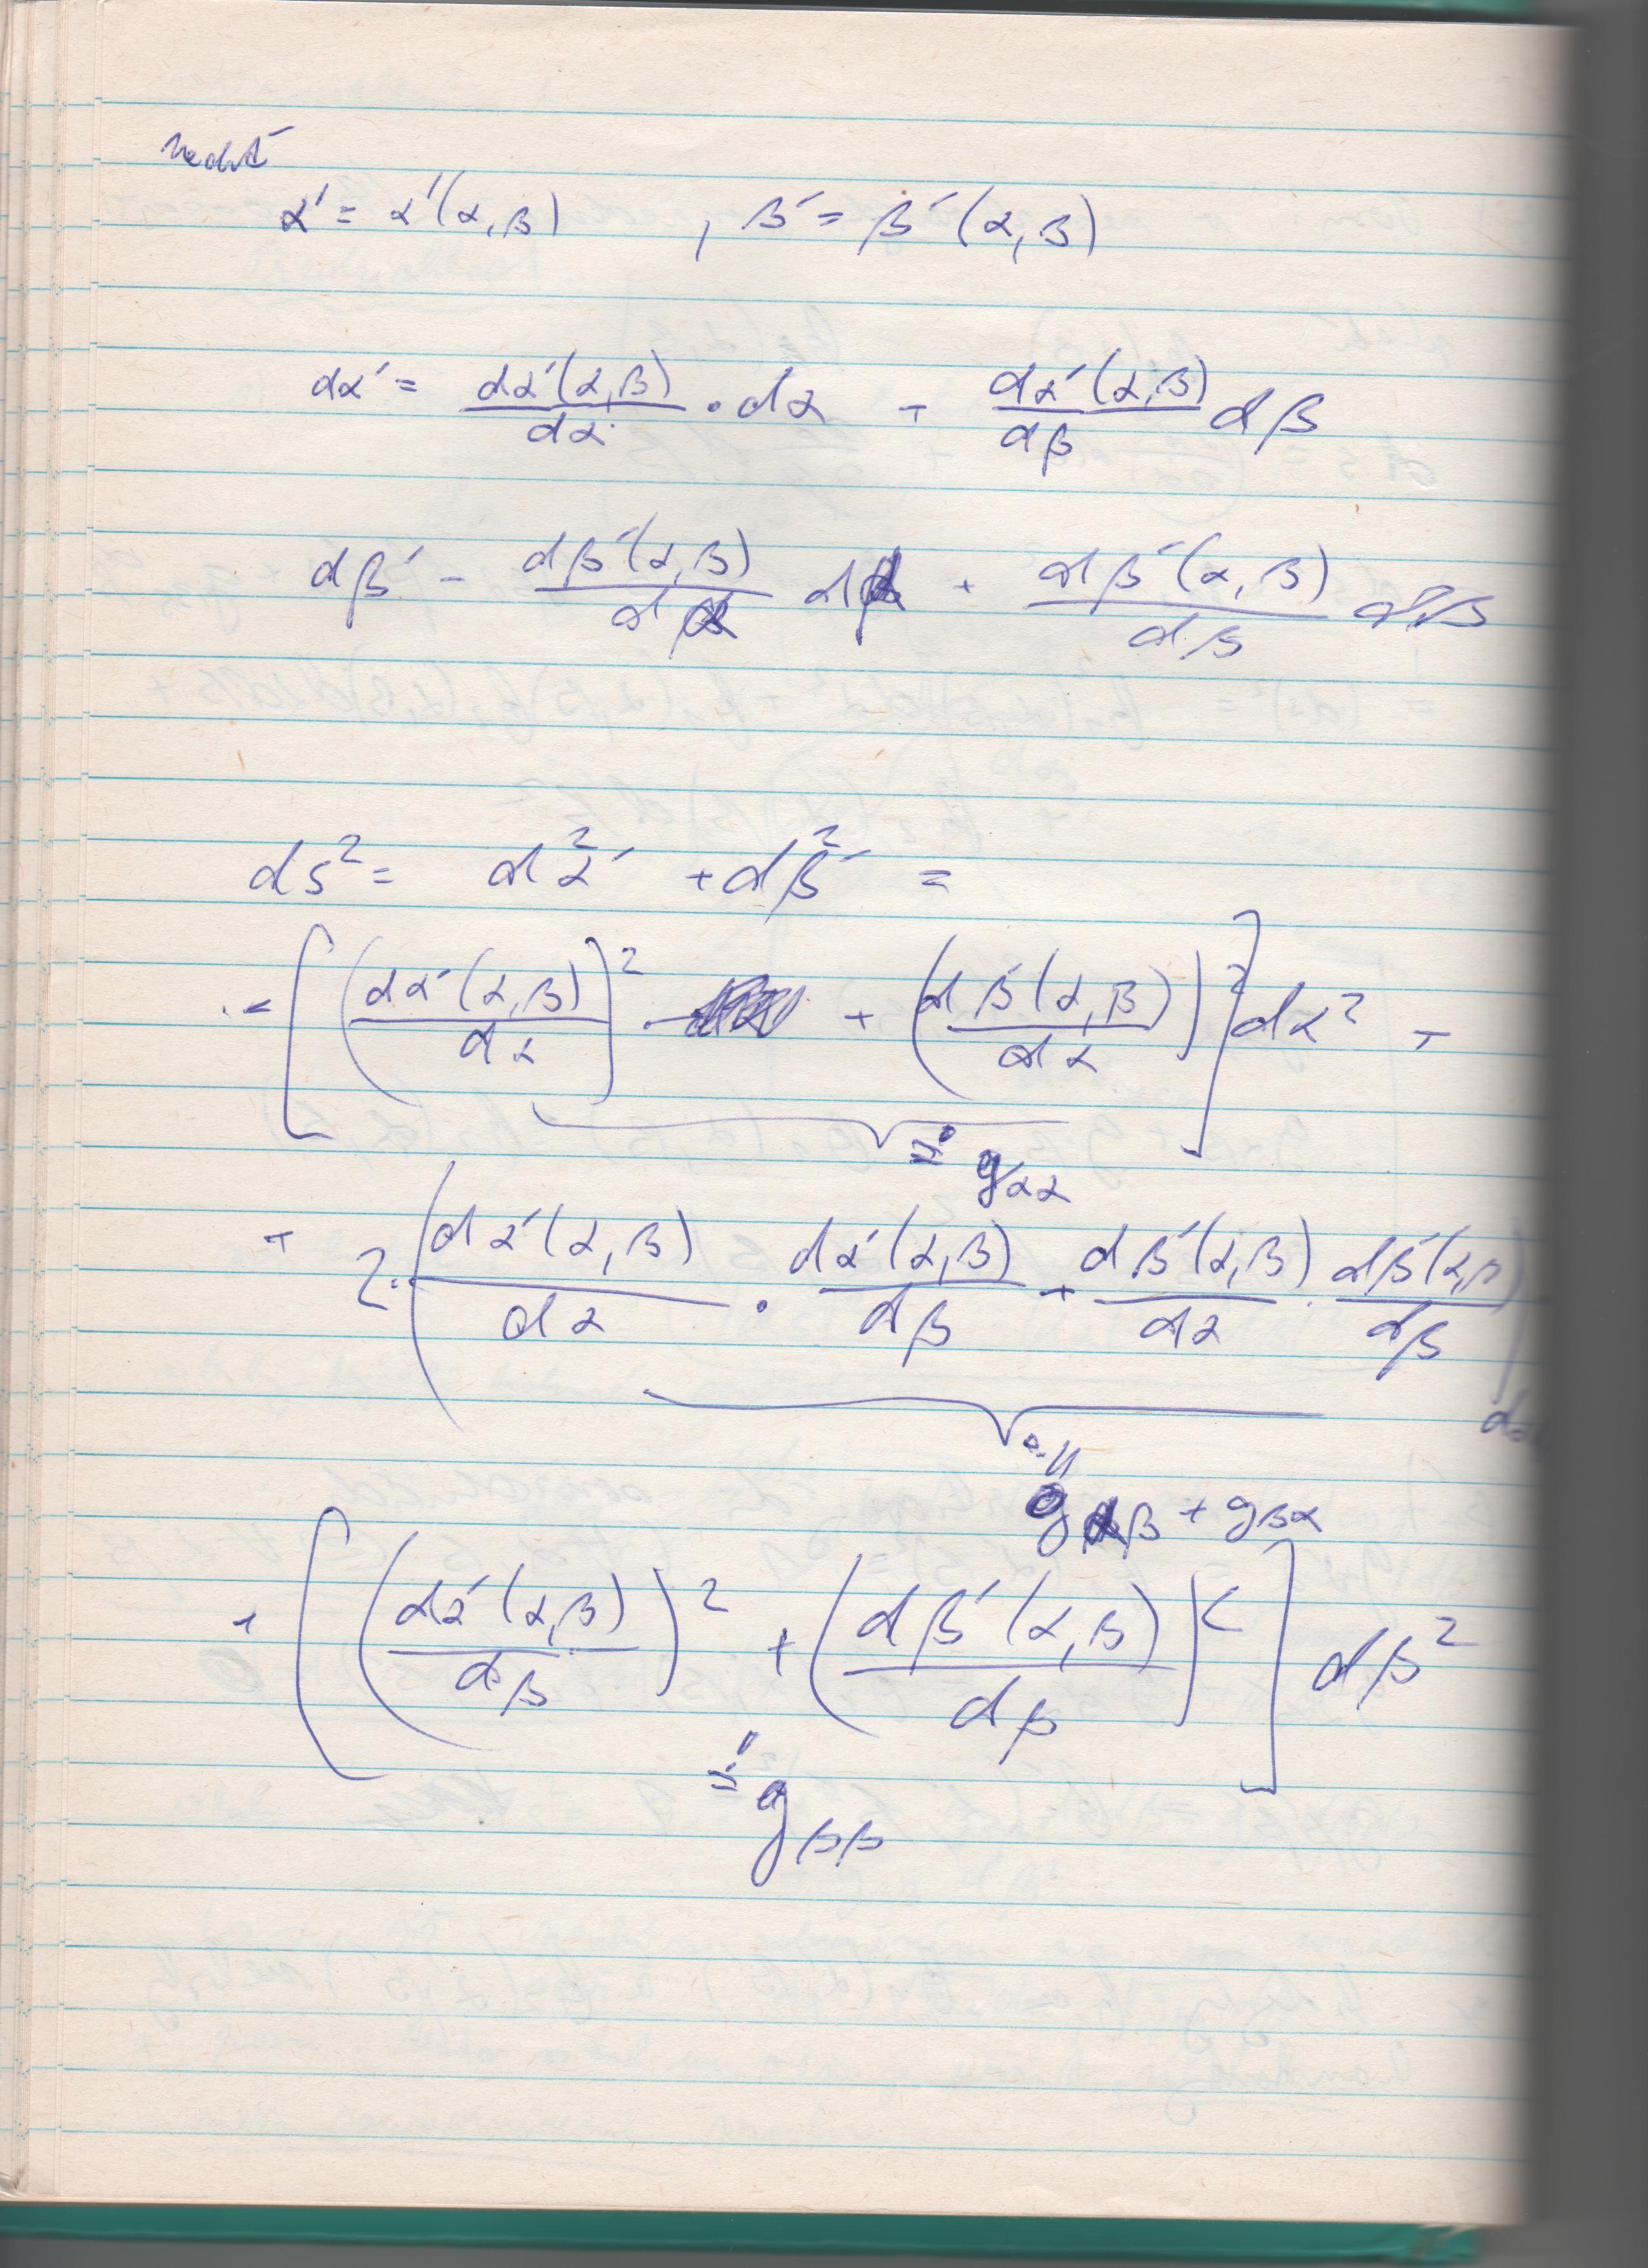 nechť
α' = α'(α,β) , β' = β'(α,β)
dα' = dα'(α,β)/dα · dα + dα'(α,β)/dβ dβ
dβ' = dβ'(α,β)/dα dα + dβ'(α,β)/dβ dβ
ds² = dα'² + dβ'² =
= [(dα'(α,β)/dα)² + (dβ'(α,β)/dα)²] dα² +
=: gαα
+ 2·(dα'(α,β)/dα · dα'(α,β)/dβ + dβ'(α,β)/dα · dβ'(α,β)/dβ)
=: gαβ + gβα
+ [(dα'(α,β)/dβ)² + (dβ'(α,β)/dβ)²] dβ²
=: gββ